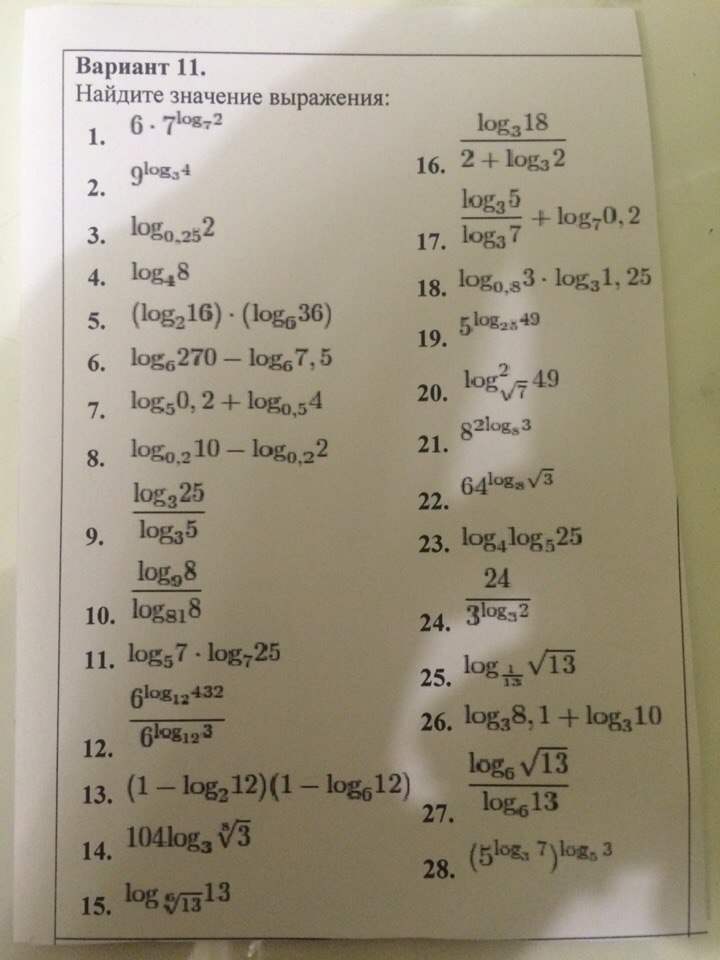 Вариант 11.
Найдите значение выражения:
1. 6 · 7^{log_7 2}
2. 9^{log_3 4}
3. log_{0,25} 2
4. log_4 8
5. (log_2 16) · (log_6 36)
6. log_6 270 − log_6 7,5
7. log_5 0,2 + log_{0,5} 4
8. log_{0,2} 10 − log_{0,2} 2
9. \frac{log_3 25}{log_3 5}
10. \frac{log_9 8}{log_{81} 8}
11. log_5 7 · log_7 25
12. \frac{6^{log_{12} 432}}{6^{log_{12} 3}}
13. (1 − log_2 12)(1 − log_6 12)
14. 104log_3 \sqrt[8]{3}
15. log_{\sqrt[6]{13}} 13
16. \frac{log_3 18}{2 + log_3 2}
17. \frac{log_3 5}{log_3 7} + log_7 0,2
18. log_{0,8} 3 · log_3 1,25
19. 5^{log_{25} 49}
20. log^2_{\sqrt{7}} 49
21. 8^{2log_8 3}
22. 64^{log_8 \sqrt{3}}
23. log_4 log_5 25
24. \frac{24}{3^{log_3 2}}
25. log_{\frac{1}{13}} \sqrt{13}
26. log_3 8,1 + log_3 10
27. \frac{log_6 \sqrt{13}}{log_6 13}
28. (5^{log_3 7})^{log_5 3}